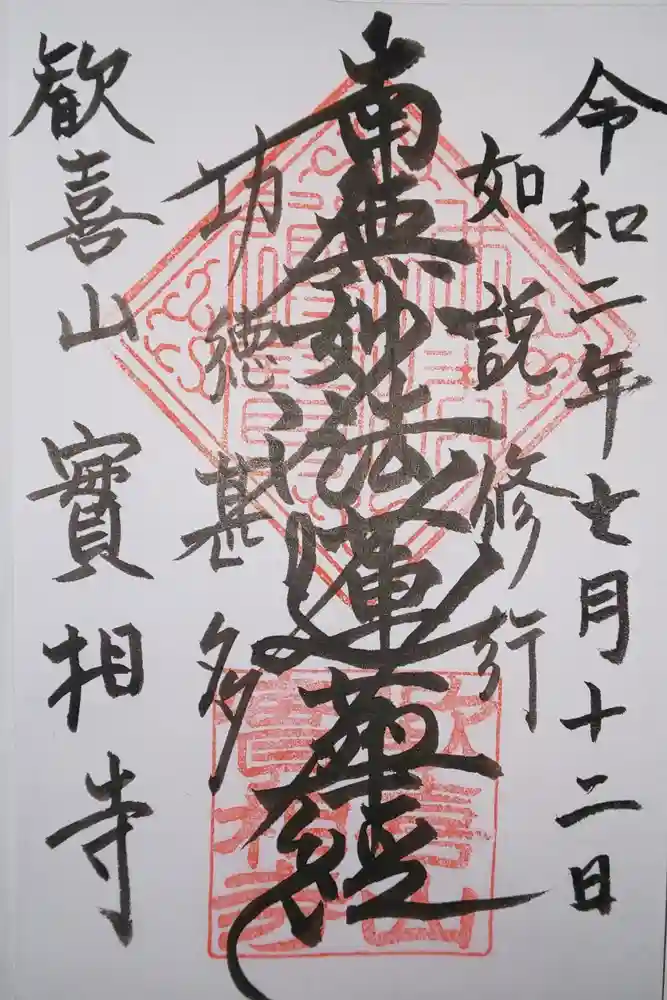 令和二年七月十二日
如説修行
南無妙法蓮華経
功徳甚多
歓喜山 實相寺
歓喜山實相寺